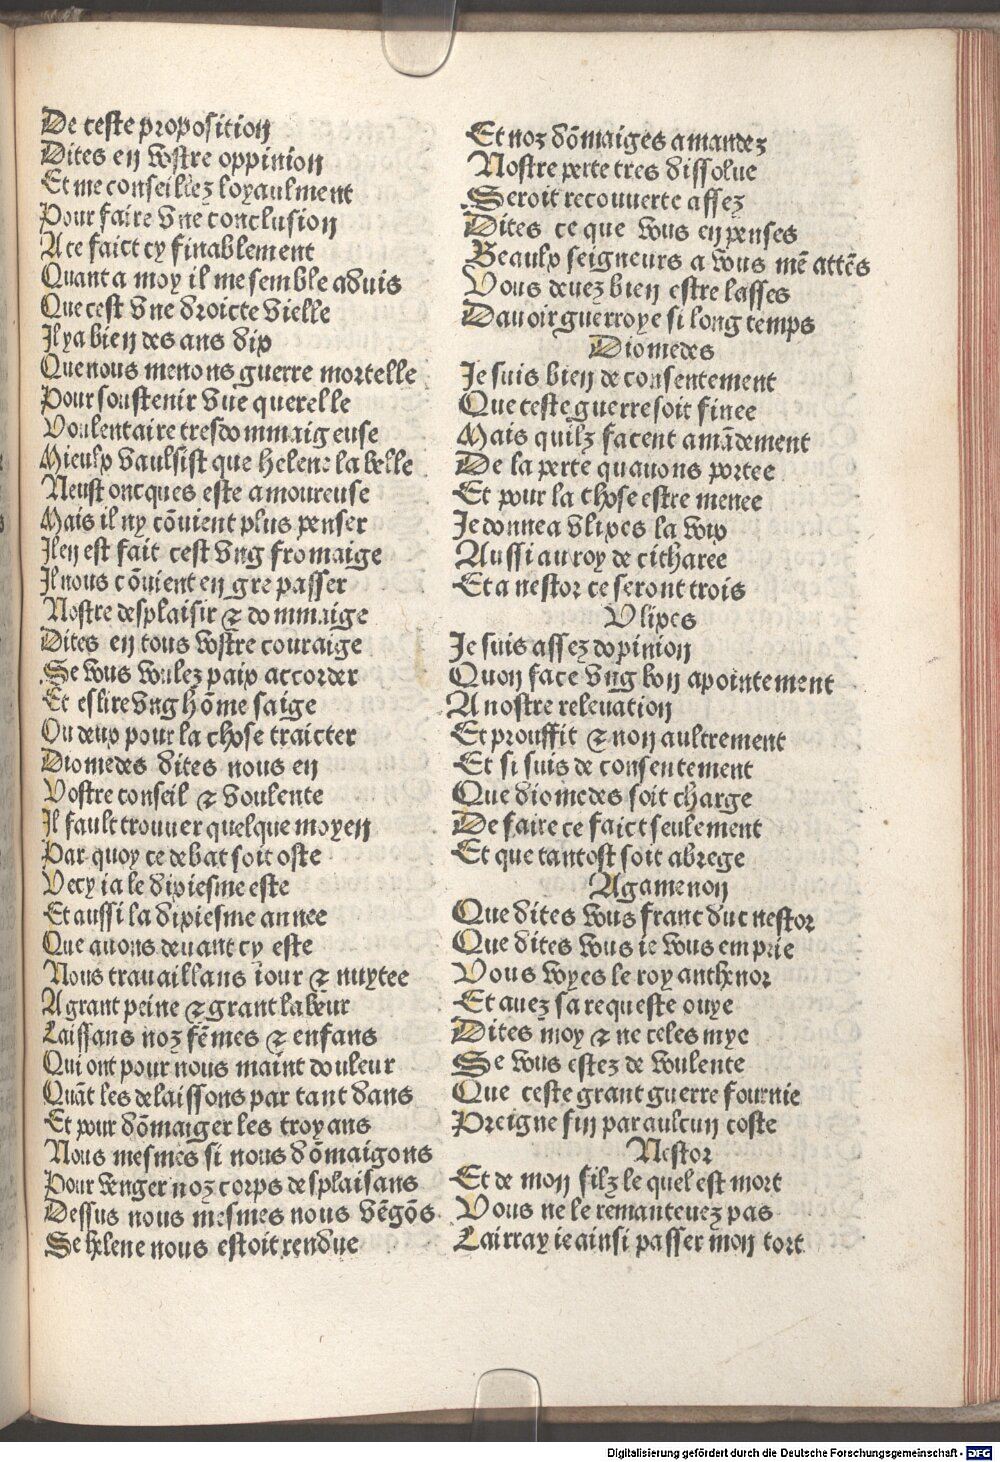 De ceste proposition
Dites en vostre oppinion
Et me conseillez loyaulment
Pour faire vne conclusion
A ce faict cy finablement
Quant a moy il me semble aduis
Que cest vne droicte vielle
Il ya bien des ans dix
Que nous menons guerre mortelle
Pour soustenir vne querelle
Voulentaire tresdommaigeuse
Mieulx vaulsist que helene la belle
Neust oncques este amoureuse
Mais il ny cõuient plus penser
Il en est fait cest vng fromaige
Il nous cõuient en gre passer
Nostre desplaisir ⁊ dommaige
Dites en tous vostre couraige
Se vous voulez paix accorder
Et eslire vng hõme saige
Ou deux pour la chose traicter
Diomedes dites nous en
Vostre conseil ⁊ voulente
Il fault trouuer quelque moyen
Par quoy ce debat soit oste
Vecy ia le dixiesme este
Et aussi la dixiesme annee
Que auons deuant cy este
Nous trauaillans iour ⁊ nuytee
A grant peine ⁊ grant labeur
Laissans noz fẽmes ⁊ enfans
Qui ont pour nous maint douleur
Quãt les delaissons par tant dans
Et pour dõmaiger les troyans
Nous mesmes si nous dõmaigons
Pour venger noz corps desplaisans
Dessus nous mesmes nous vẽgõs
Se helene nous estoit rendue
Et noz dõmaiges amandez
Nostre perte tres dissolue
Seroit recouuerte assez
Dites ce que vous en penses
Beaulx seigneurs a vous mẽ attẽs
Vous deuez bien estre lasses
Dauoir guerroye si long temps
Diomedes
Je suis bien de consentement
Que ceste guerre soit finee
Mais quilz facent amãdement
De la perte quauons portee
Et pour la chose estre menee
Je donne a vlixes la voix
Aussi au roy de citharee
Et a nestor ce seront trois
Vlixes
Je suis assez dopinion
Quon face vng bon apointement
A nostre releuation
Et prouffit ⁊ non aultrement
Et si suis de consentement
Que diomedes soit charge
De faire ce faict seulement
Et que tantost soit abrege
Agamenon
Que dites vous franc duc nestor
Que dites vous ie vous em prie
Vous voyes le roy anthenor
Et auez sa requeste ouye
Dites moy ⁊ ne celes mye
Se vous estez de voulente
Que ceste grant guerre fournie
Preigne fin par aulcun coste
Nestor
Et de mon filz le quel est mort
Vous ne le remanteuez pas
Lairray ie ainsi passer mon tort
Digitalisierung gefördert durch die Deutsche Forschungsgemeinschaft - DFG